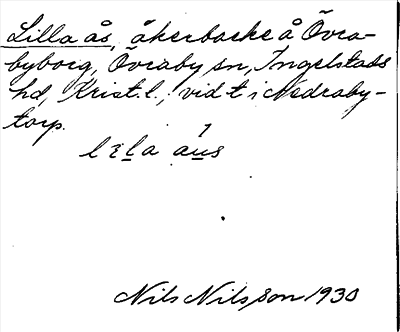 Lilla ås, åkerbacke å Övra-
byborg, Övraby sn, Ingelstads
hd, Krist. l., vid t i Nedraby-
torp.
lɛla aus
Nils Nilsson 1930